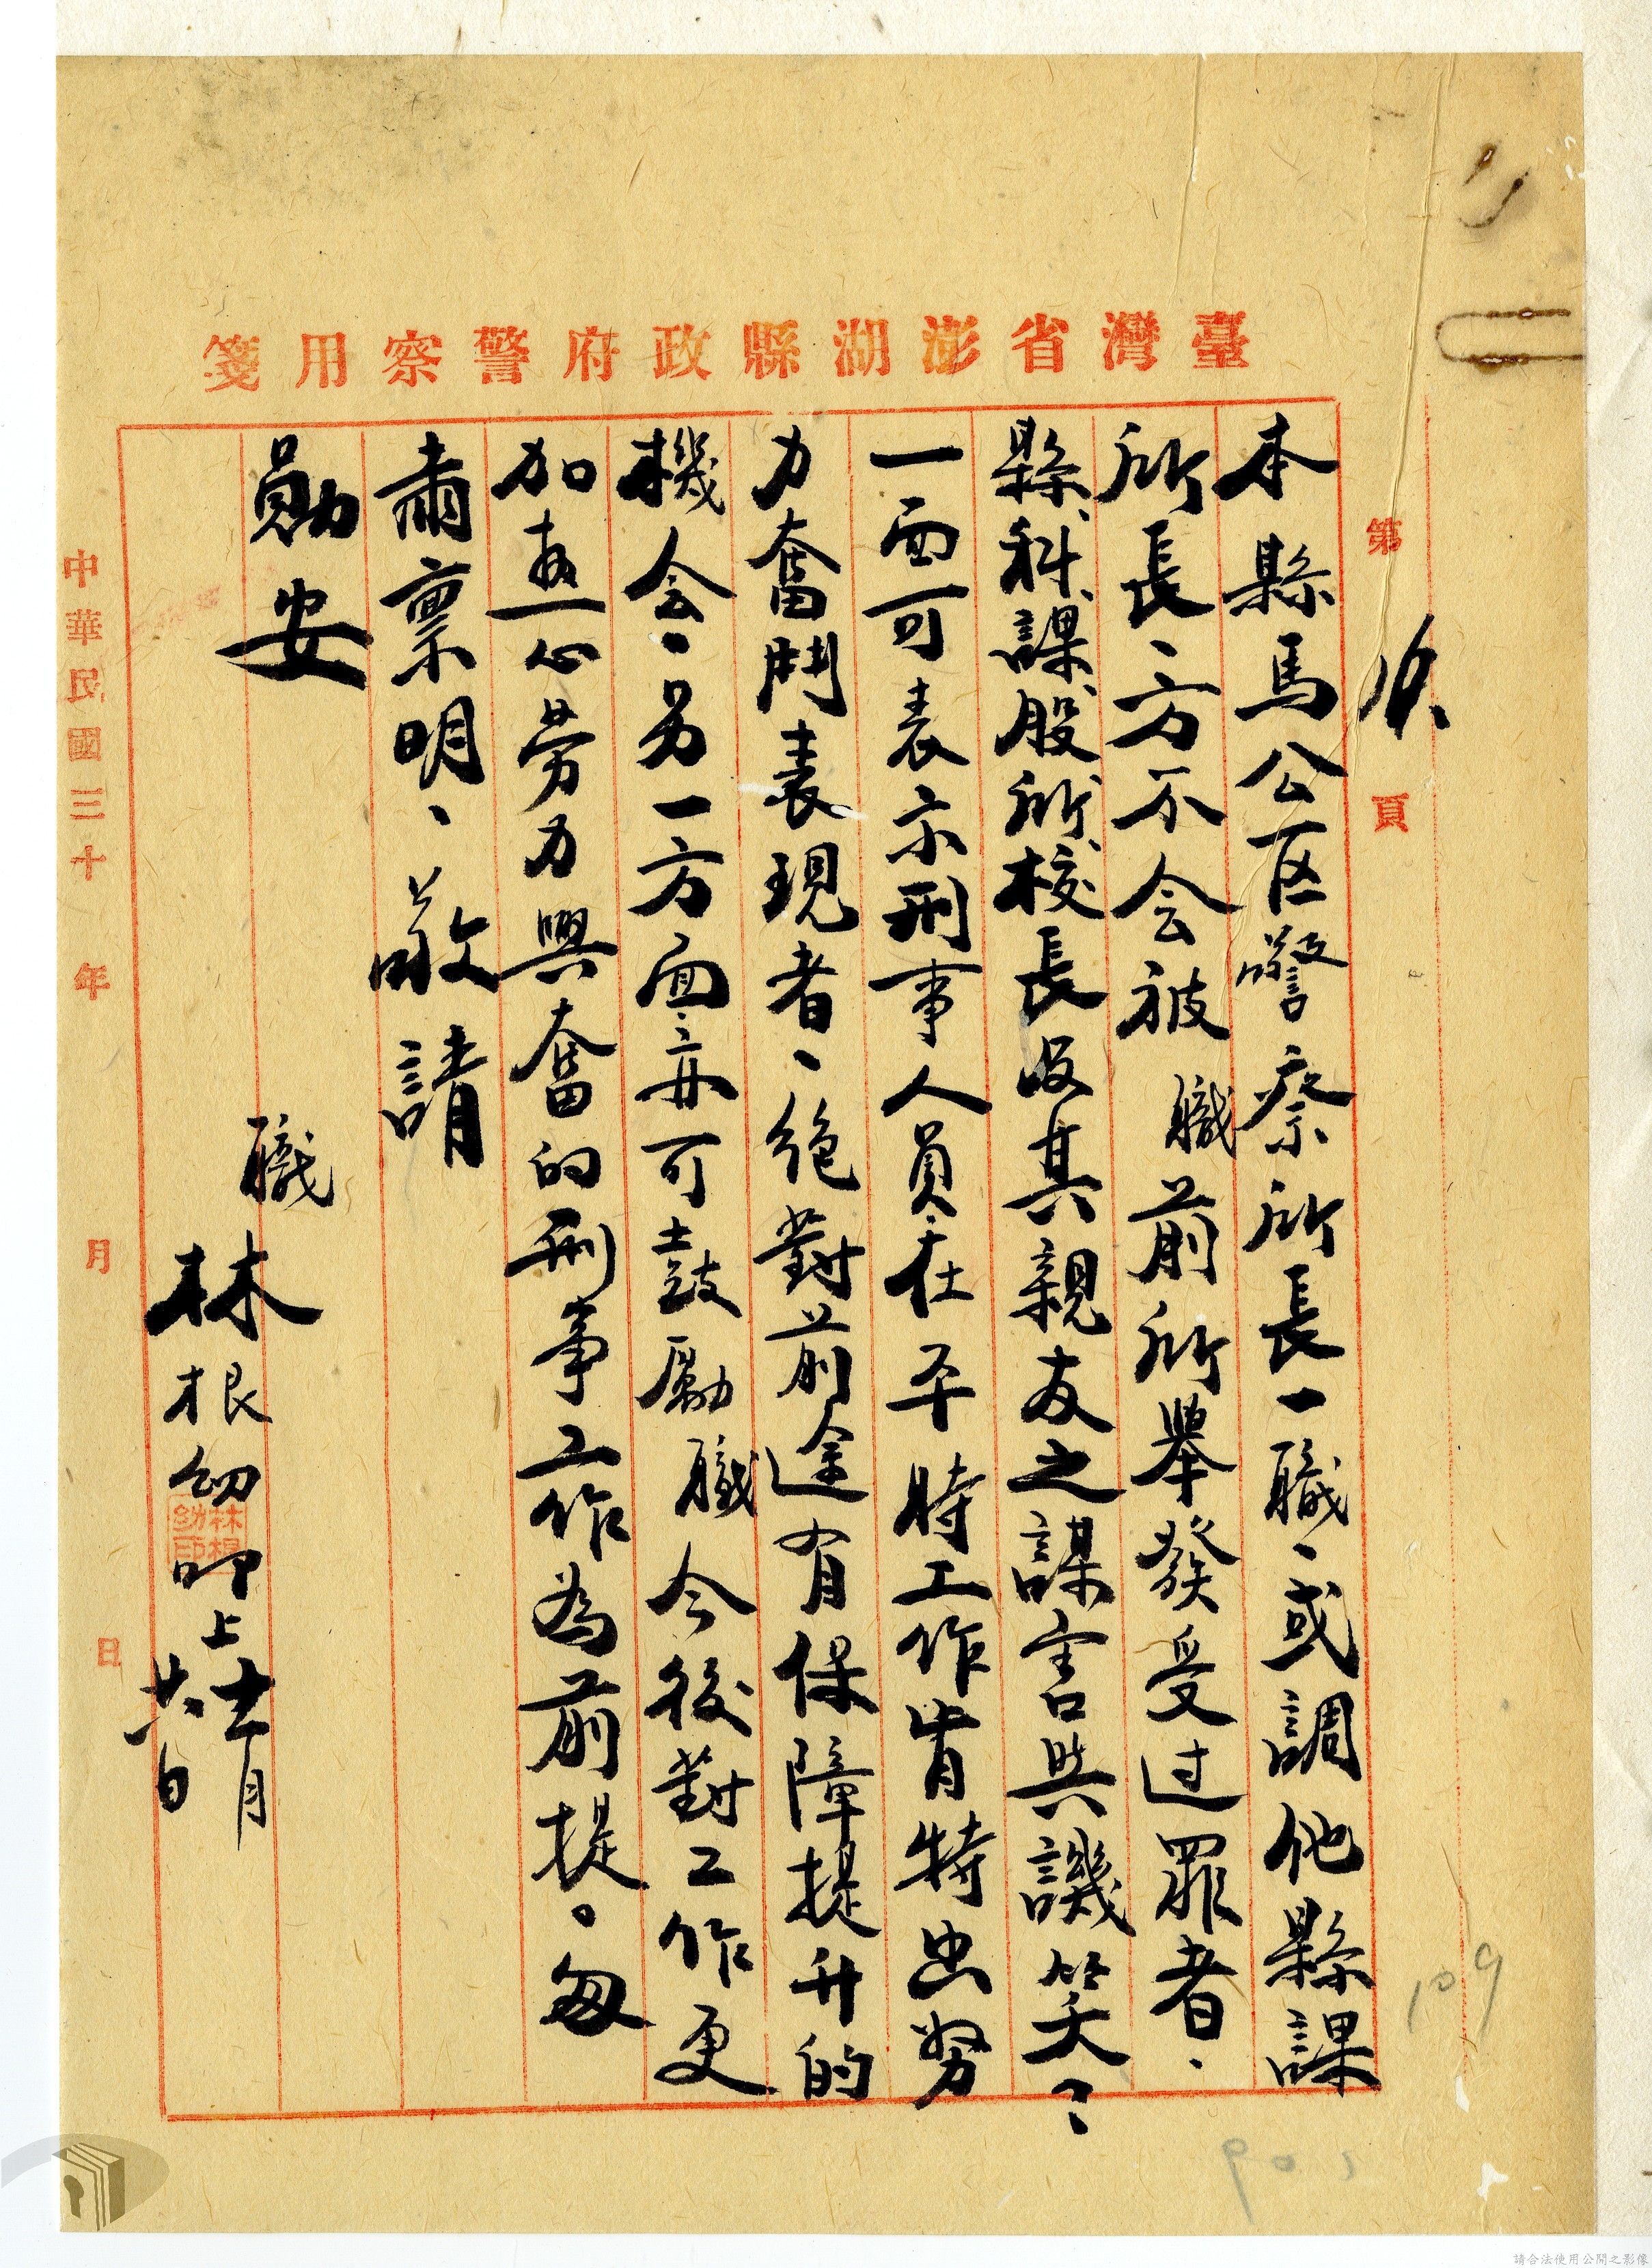 臺灣省澎湖縣政府警察用箋
第
頁
本縣馬公区警察所長一職、或調他縣課
所長、方不会被職前所舉發受过罪者、
縣、科、課、股、所、校長及其親友之謀害與譏笑、
一面可表示刑事人員、在平時工作肯特出努
力奮鬥表現者、絶對前途有保障提升的
機会、另一方面、亦可鼓勵職今後對工作更
加一心勞力興奮的刑事工作為前提。匆
肅禀明、敬請
勛安
職林根幼叩上十一月
廿六日
林根幼印
中華民國三十年月日
109
109
請合法使用公開之影像